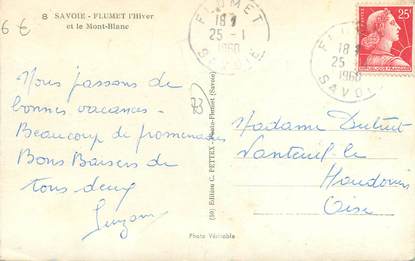 6 €
8 SAVOIE - FLUMET l'Hiver
et le Mont-Blanc
FLUMET
18 H
25 - 1
1960
SAVOIE
FLUMET
18 H
25 - 1
1960
SAVOIE
25F
Nous passons de
bonnes vacances -
Beaucoup de promenades
Bons Baisers de
tous deux
Suzanne
73
(50) Edition C. FETTEX - Photo-Flumet (Savoie)
Madame
Nanteuil-le
Haudouin
Oise
Photo Véritable